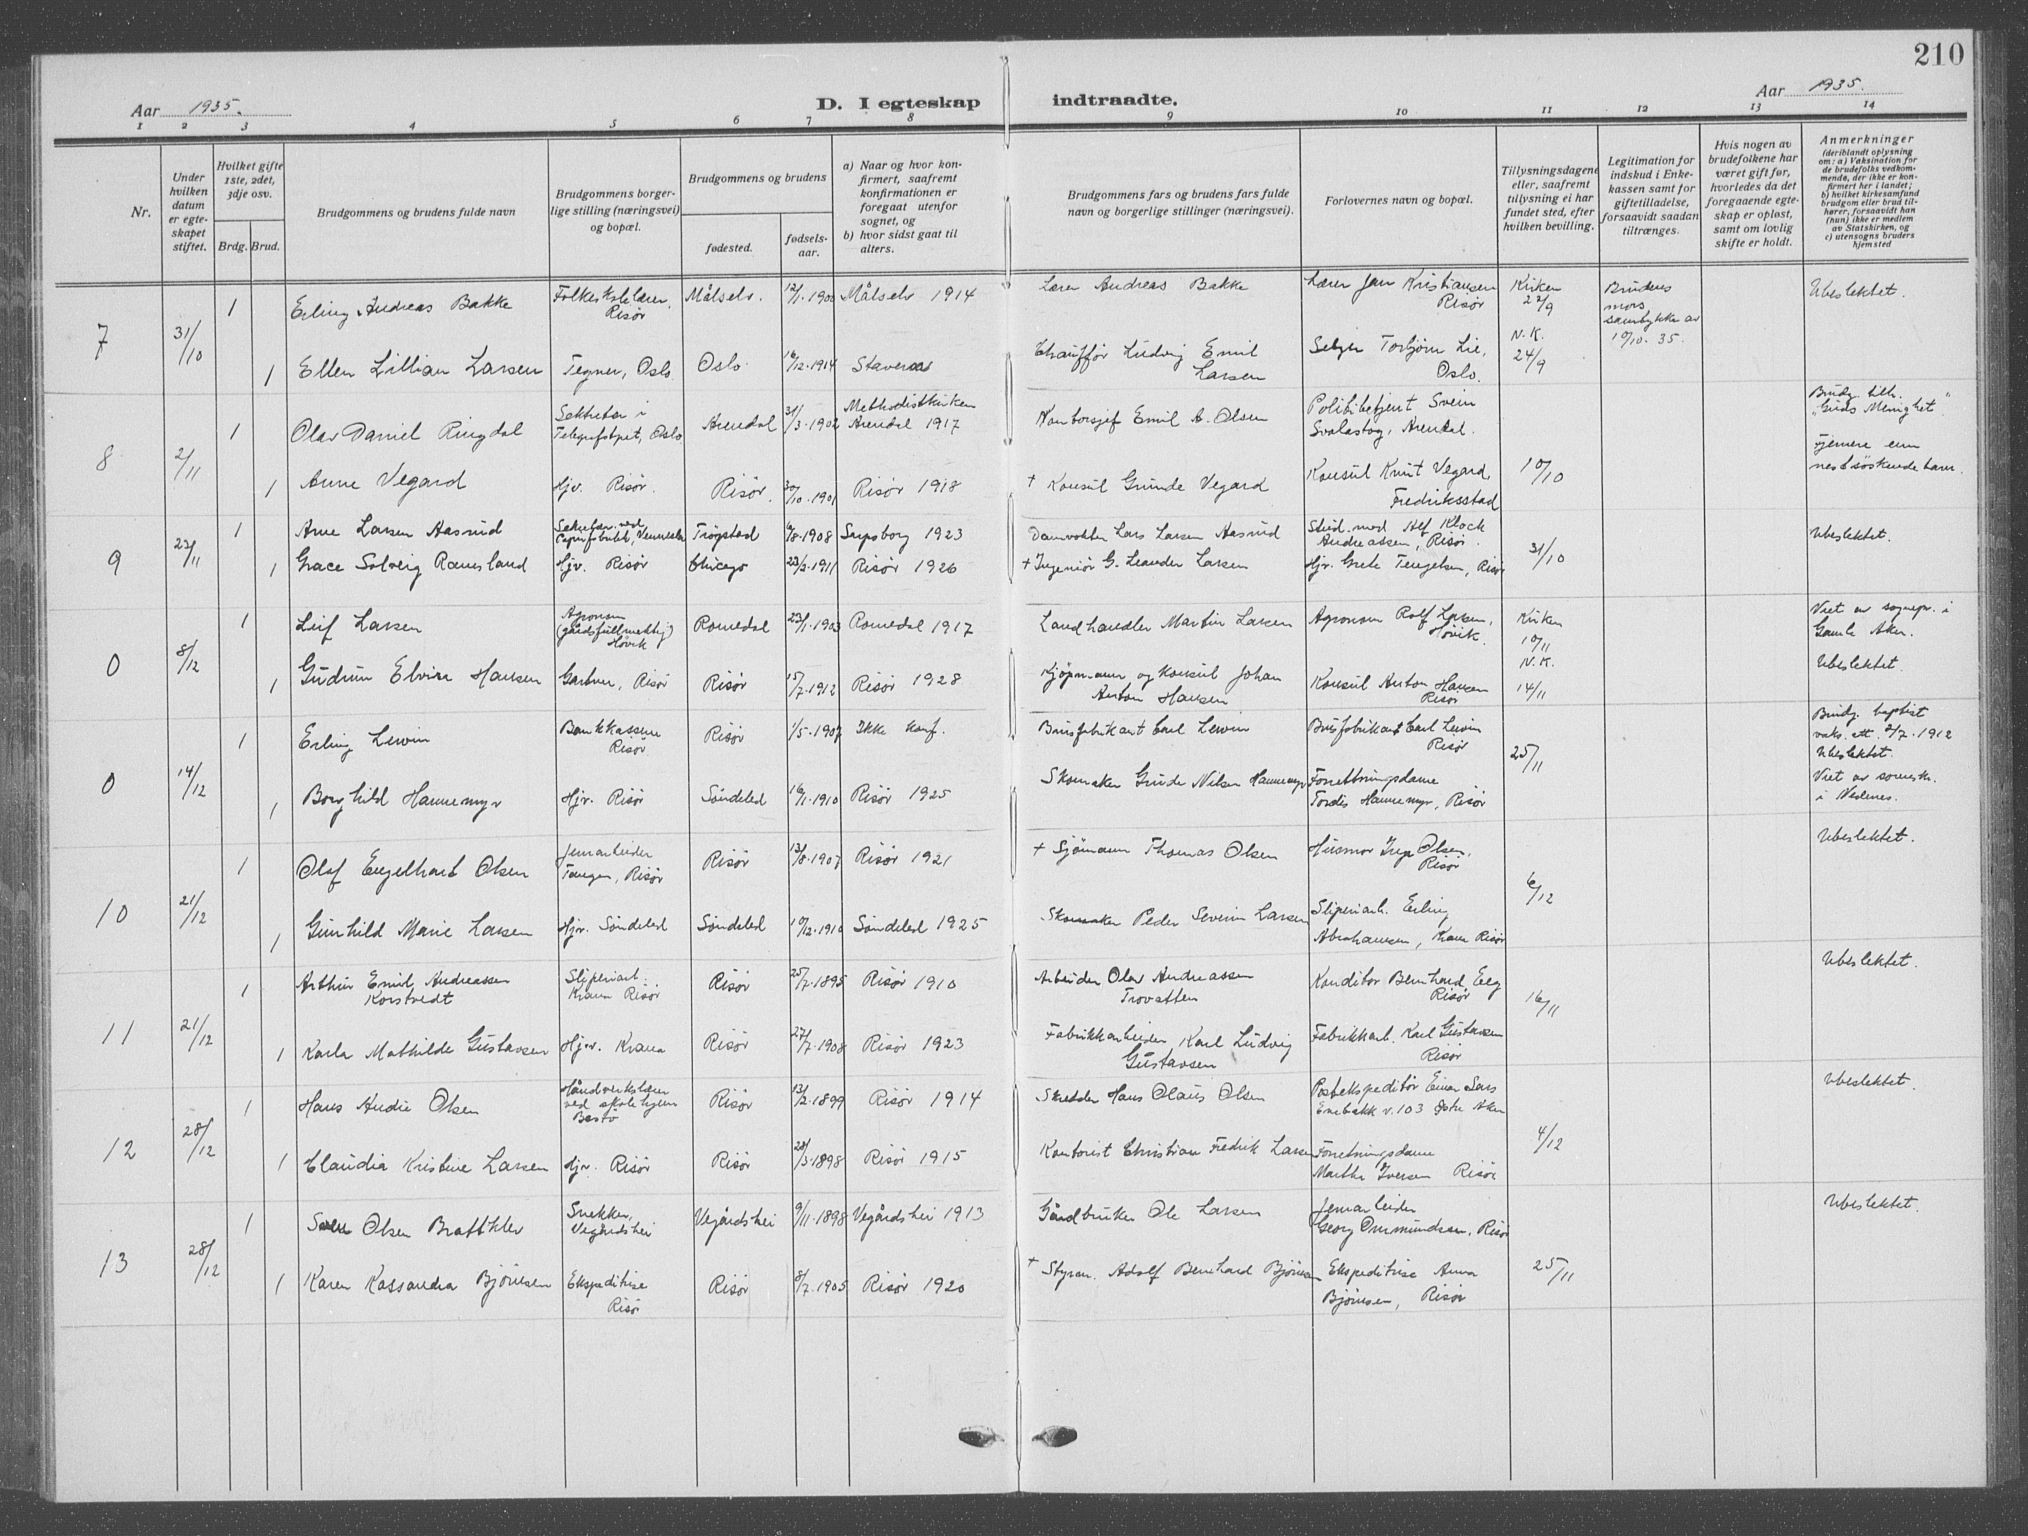 210
Aar 1935.
D. I egteskap indtraadte.
Aar 1935.
1 2 3 4 5 6 7 8 9 10 11 12 13 14
Nr.
Under hvilken datum er egteskapet stiftet.
Hvilket gifte 1ste, 2det, 3dje osv.
Brdg. Brud.
Brudgommens og brudens fulde navn
Brudgommens borgerlige stilling (næringsvei) og bopæl.
Brudgommens og brudens
fødested. fødselsaar.
a) Naar og hvor konfirmert, saafremt konfirmationen er foregaat utenfor sognet, og
b) hvor sidst gaat til alters.
Brudgommens fars og brudens fars fulde navn og borgerlige stillinger (næringsvei).
Forlovernes navn og bopæl.
Tillysningsdagene eller, saafremt tillysning ei har fundet sted, efter hvilken bevilling.
Legitimation for indskud i Enkekassen samt for giftetilladelse, forsaavidt saadan tiltrænges.
Hvis nogen av brudefolkene har været gift før, hvorledes da det foregaaende egteskap er opløst, samt om lovlig skifte er holdt.
Anmerkninger
(deriblandt oplysning om: a) Vaksination for de brudefolks vedkommende, der ikke er konfirmert her i landet; b) hvilket kirkesamfund brudgom eller brud tilhører, forsaavidt han (hun) ikke er medlem av Statskirken, og c) utensogns bruders hjemsted
7 31/10 1 Erling Andreas Bakke Folkeskolelærer, Risør Målselv. 12/1.1900 Målselv 1914 Lærer Andreas Bakke Lærer Jan Kristiansen Risør Kirken 22/9 Brudens mors samtykke av 10/10. 35. Ubeslektet.
1 Ellen Lillian Larsen Tegner, Oslo Oslo 16/12.1914 Chauffør Ludvig Emil Larsen Selger Torbjørn Lie, Oslo. N.K. 24/9
8 2/11 1 Olav Daniel Ringdal Sekretær i Telegrafstyret, Oslo Arendal 31/3.1902 Methodistkirken Arendal 1917 Kontorsjef Emil A. Olsen Politibetjent Svein Svalastog, Arendal. Brudg. tilh. "Guds Menighet".
1 Anne Vegard Hjv. Risør. Risør. 30/10.1901 Risør 1918 + Konsul Grunde Vegard Konsul Knut Vegard, Fredriksstad 10/10 Fjernere enn nestsøskendebarn.
9 23/11 1 Arne Larsen Aasrud Sekretær ved Papirfabrikk, Vennesla Trøgstad 6/8.1908 Sarpsborg 1923 Damvokter Lars Larsen Aasrud Stud. med Alf Klock Andreassen, Risør. Ubeslektet.
1 Grace Solveig Ramsland Hjv. Risør Chicago 23/2.1911 Risør 1926 + Ingeniør G. Leander Larsen Hjv. Grete Tengelsen, Risør 31/10
0 8/12 1 Leif Larsen Agronom (gårdsfullmektig) Høvik Romedal 23/1.1903 Romedal 1917 Landhandler Martin Larsen Agronom Rolf Larsen, Høvik. Kirken 10/11 Viet av sognepr. i Gamle Aker.
1 Gudrun Elvira Hansen Gartner, Risør Risør 15/7.1912 Risør 1928 Kjøpmann og konsul Johan Anton Hansen Konsul Anton Hansen Risør N.K. 14/11 Ubeslektet.
0 14/12 1 Erling Lewin Bankkasserer Risør Risør 1/5.1907 Ikke konf. Brusfabrikant Carl Lewin Brusfabrikant Carl Lewin Risør 25/11 Brudg. baptist vaks. att. 2/7.1912 Ubeslektet.
1 Borghild Hannemyr Hjv. Risør Søndeled 16/1.1910 Risør 1925 Skomaker Grunde Nilsen Hannemyr Forretningsdame Tordis Hannemyr, Risør Viet av sorenskr. i Nedenes.
10 21/12 1 Olaf Engelhart Olsen Jernarbeider Tangen, Risør Risør 13/8.1907 Risør 1921 + Sjømann Thomas Olsen Husmor Inga Olsen, Risør 6/12 Ubeslektet.
1 Gunhild Marie Larsen Hjv. Søndeled Søndeled 10/12.1910 Søndeled 1925 Skomaker Peder Severin Larsen Sliperiarb. Erling Abrahamsen, Krana Risør
11 21/12 1 Arthur Emil Andreassen Korstvedt Sliperiarb. Krana Risør Risør 25/7.1895 Risør 1910 Arbeider Olav Andreassen Trovatten Konditor Bernhard Eeg Risør 16/11 Ubeslektet.
1 Karla Mathilde Gustavsen Hjv. Krana Risør 27/7.1908 Risør 1923 Fabrikkarbeider Karl Ludvig Gustavsen Fabrikkarb. Karl Gustavsen Risør
12 28/12 1 Hans Andre Olsen Håndverkslærer ved skolehjem Bastø Risør 13/2.1899 Risør 1914 Skredder Hans Olaus Olsen Postekspeditør Einar Sars Enebakk v. 103 Østre Aker Ubeslektet.
1 Claudia Kristine Larsen Hjv. Risør Risør 28/3.1898 Risør 1915 Kontorist Christian Fredrik Larsen Forretningsdame Martha Iversen Risør 4/12
13 28/12 1 Olsen Brattklev Snekker, Vegårdshei Vegårdshei 9/11.1898 Vegårdshei 1913 Gårdbruker Ole Larsen Jernarbeider Georg Ommundsen, Risør Ubeslektet.
1 Karen Kassandra Bjørnsen Ekspeditrise Risør Risør 8/7.1905 Risør 1920 + Styrm. Adolf Bernhard Bjørnsen Ekspeditrise Anna Bjørnsen, Risør 25/11